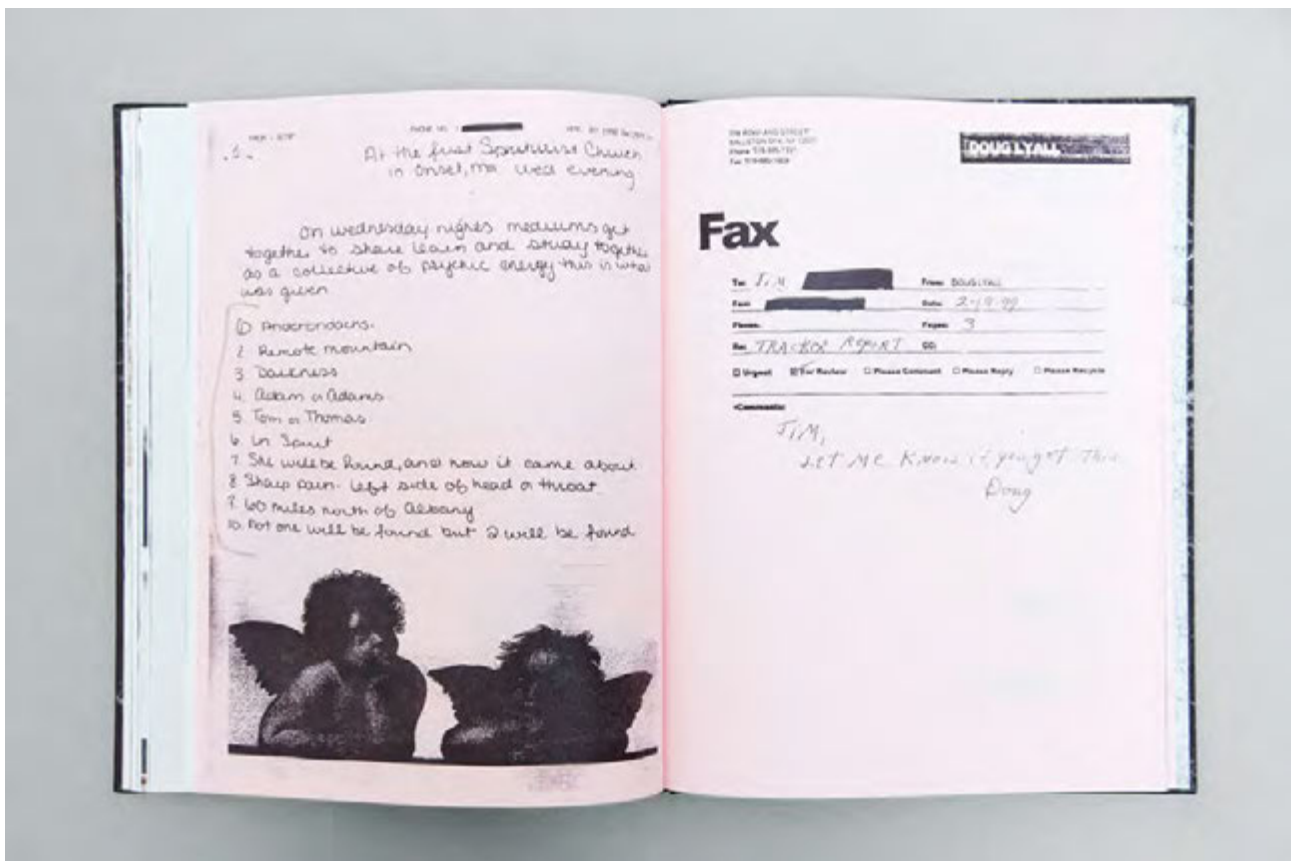 .1.
At the first Spiritulist Church
in Onset, ma wed evening
On wednesday nights mediums get
together to share learn and study together
as a collective of psychic energy this is what
was given
2 Remote mountain
3 Darkness
4. Adam or Adams.
5. Tom or Thomas.
6. In Spirit
7. She will be found, and how it came about
8 Sharp pain. Left side of head or throat
9. 60 miles north of Albany
10. Not one will be found but 2 will be found
DOUG LYALL
Fax
To: Jim From: DOUG LYALL
Fax: Date: 2-19-99
Phone: Pages: 3
Re: TRACKER REPORT CC:
Urgent For Review Please Comment Please Reply Please Recycle
•Comments:
JIM,
LET ME KNOW if you get This.
Doug